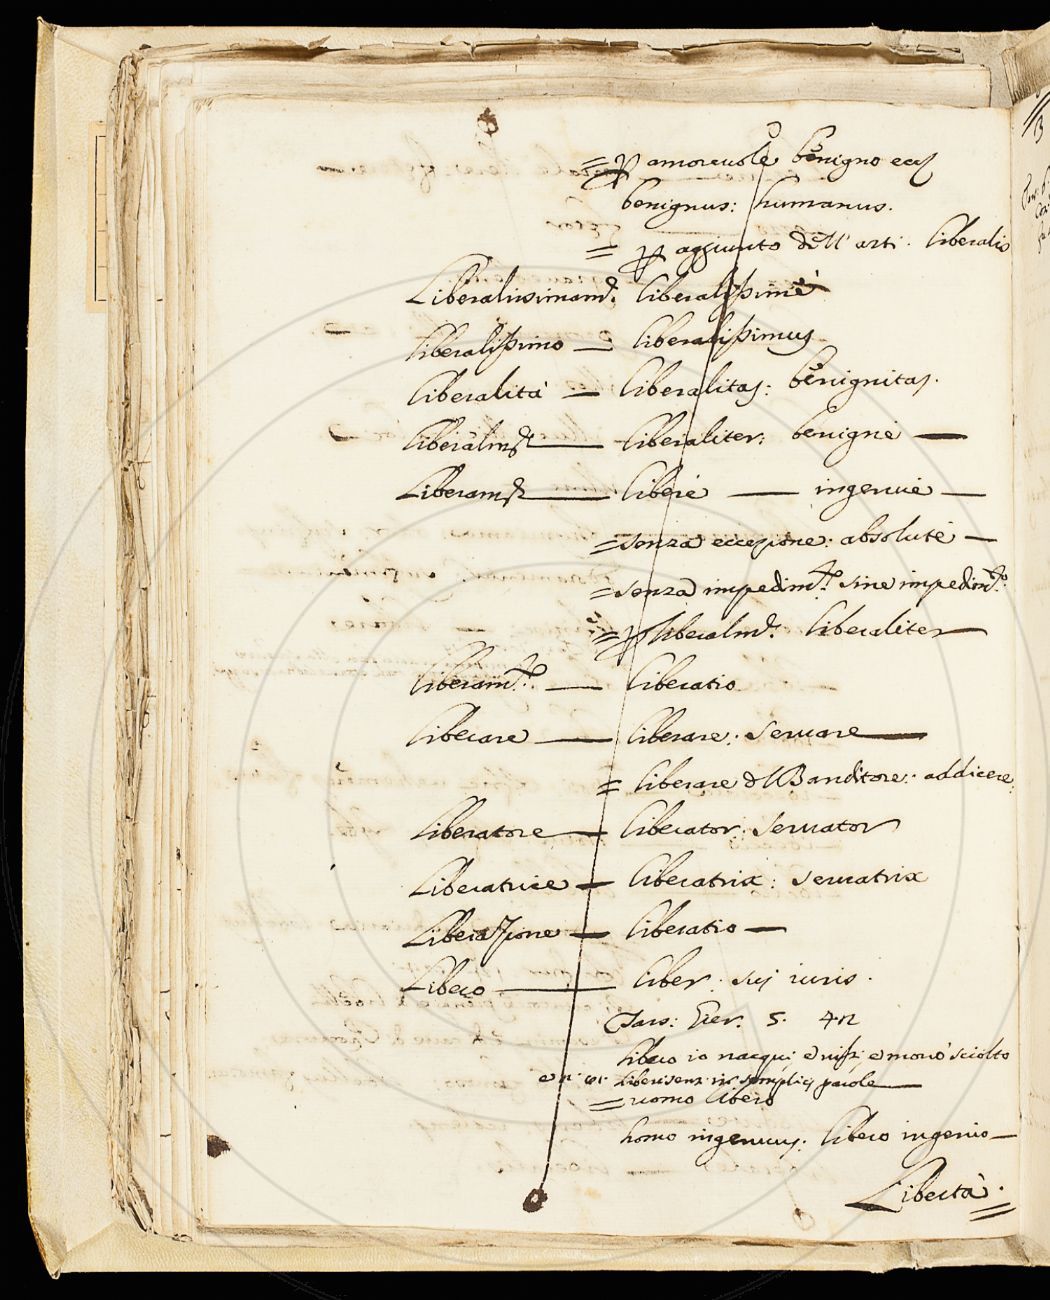 = p amorevole benigno ecc
benignus: humanus.
= p aggiunto dell' arti. liberalis
Liberalissimam.te liberalissimè
liberalissimo — liberalissimus
liberalità — liberalitas: benignitas.
liberalm.te — liberaliter: benignè —
Liberam.te — liberè — ingenuè —
= senza eccezione: absolutè —
= senza impedim.to sine impedim.to
= p liberalm.te liberaliter —
liberam.to — liberatio
liberare — liberare: servare —
= liberare dl Banditore: addicere:
liberatore — liberator: servator
Liberatrice — liberatrix: servatrix
Liberazione — liberatio —
Libero — liber: suj iuris.
5. 42
libero io nacqui e vissi e morrò sciolto
semplicj parole —
= uomo libero
homo ingenuus: libero ingenio —
Libertà. =